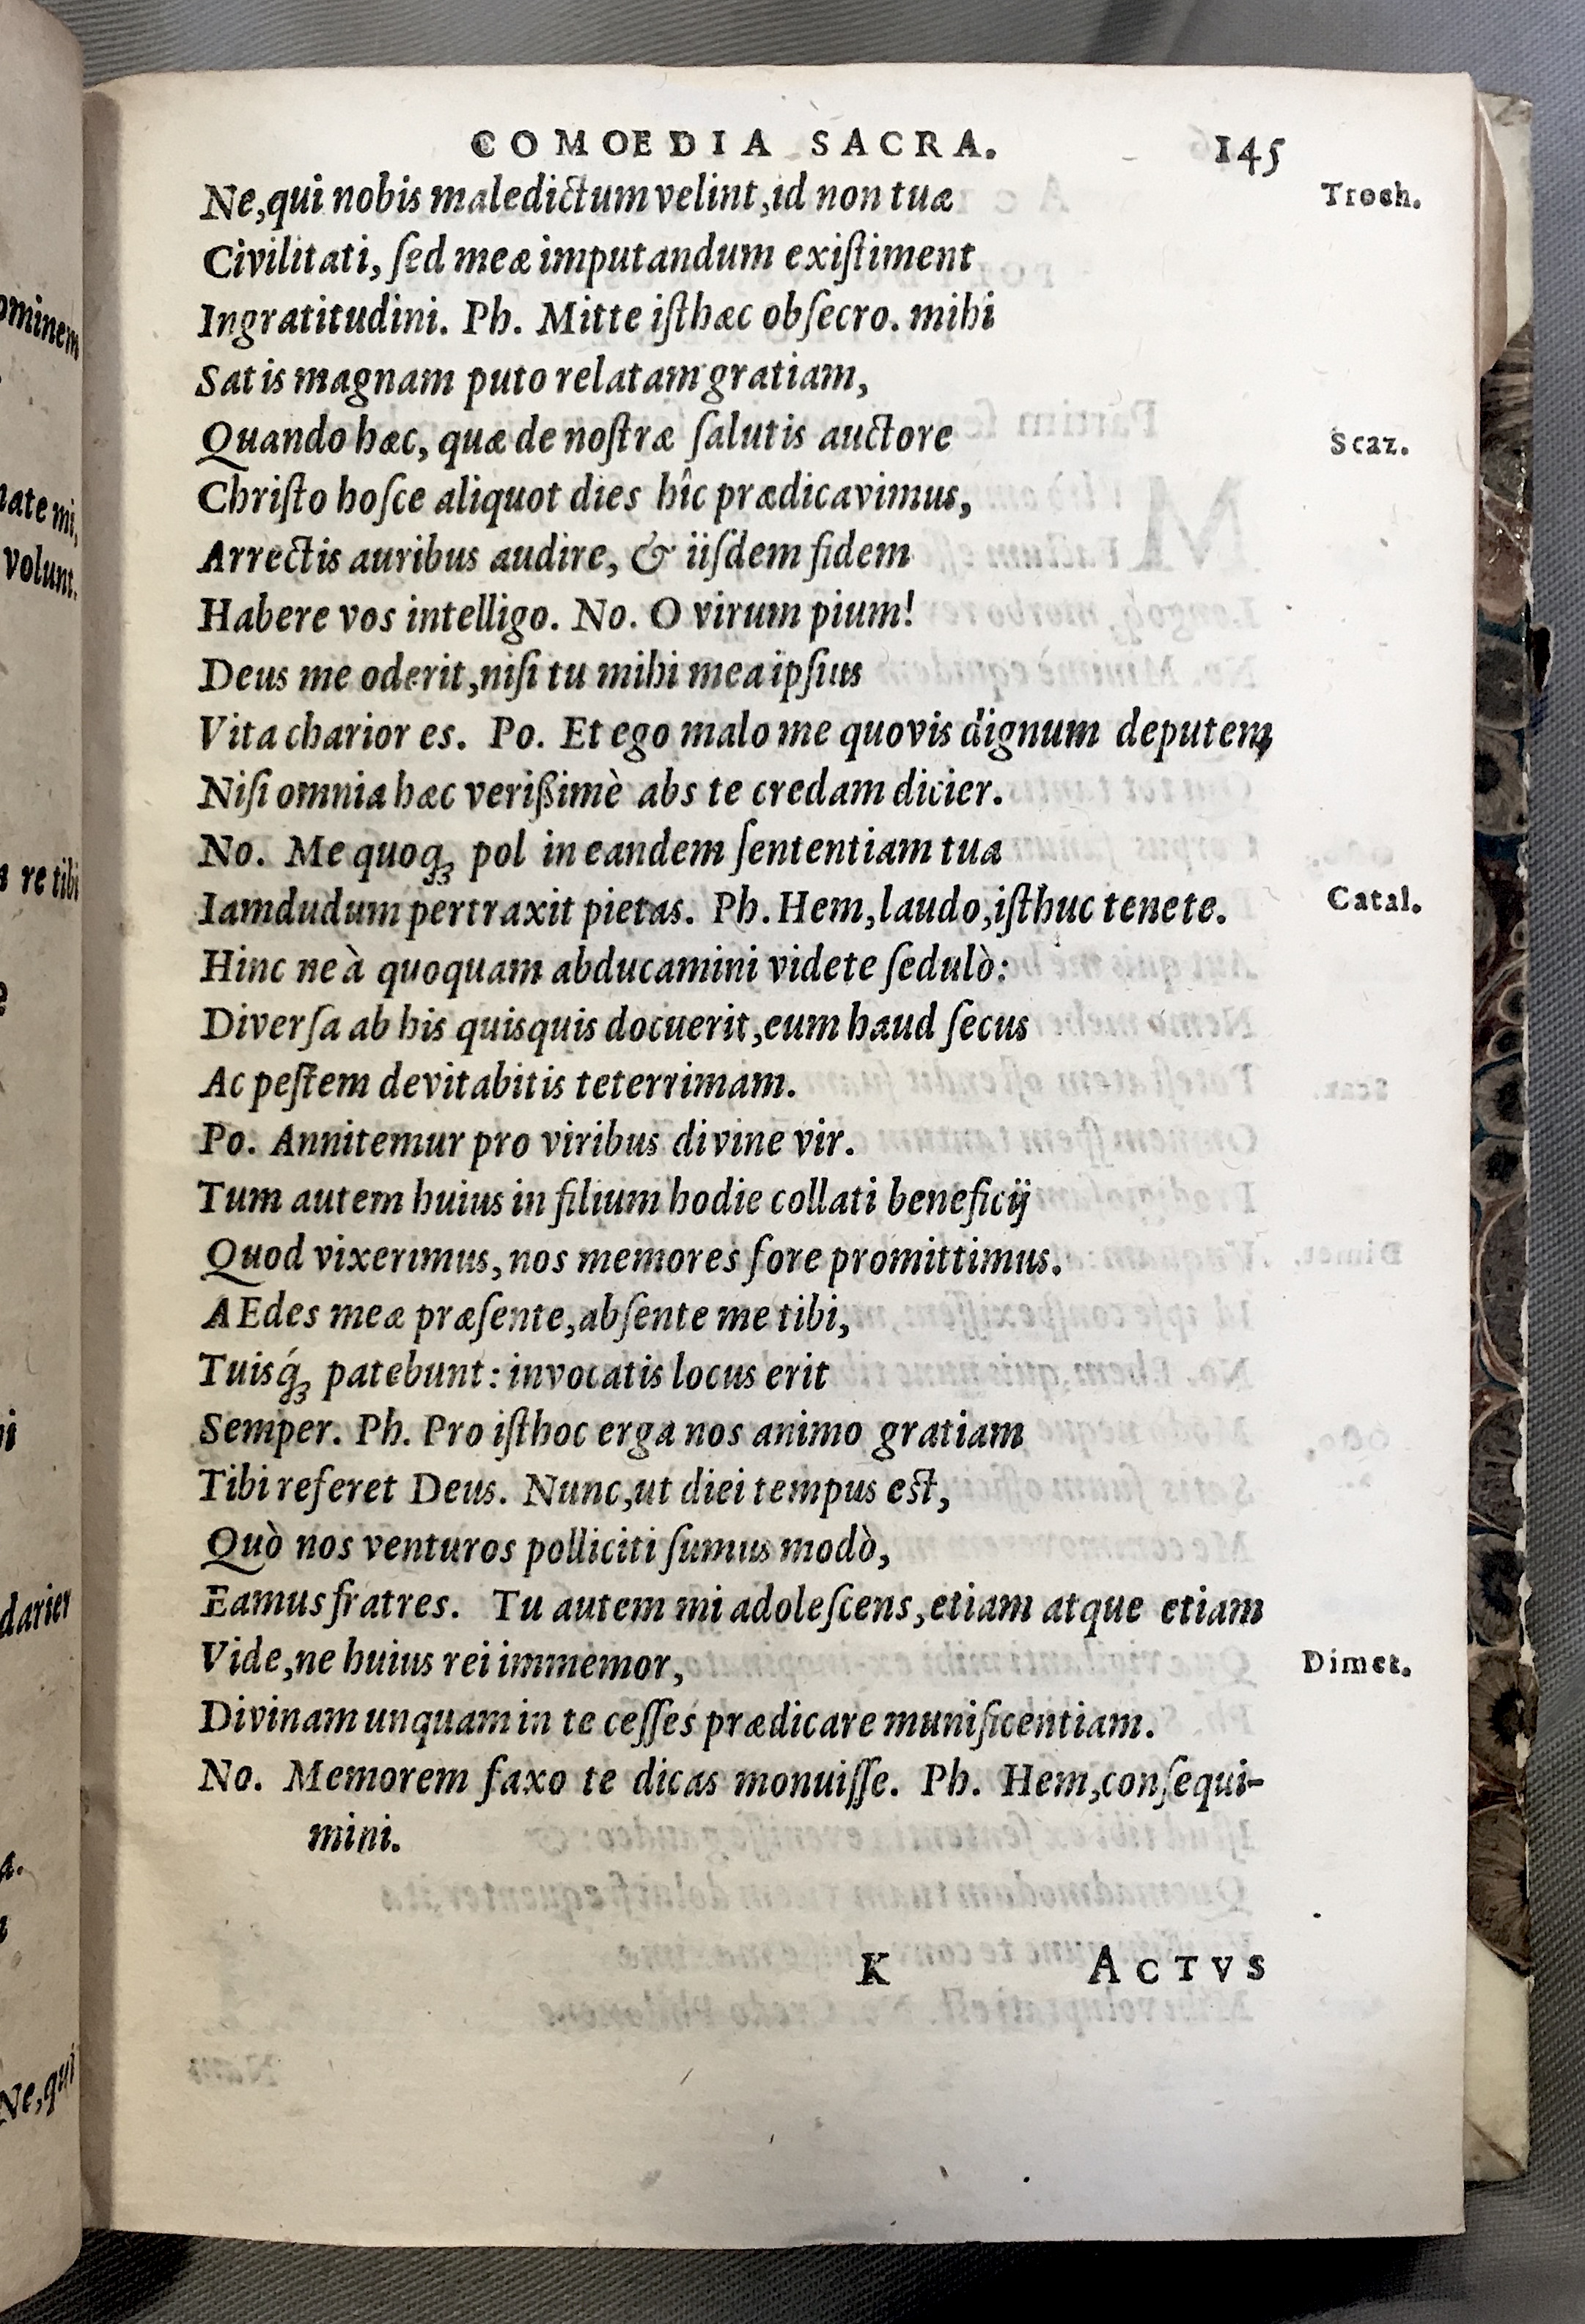 COMOEDIA SACRA. 145
Ne,qui nobis maledictum velint,id non tuæ Troch.
Civilitati, ſed meæ imputandum exiſtiment
Ingratitudini. Ph. Mitte iſthæc obſecro. mihi
Satis magnam puto relatam gratiam,
Quando hæc, quæ de noſtræ ſalutis auctore Scaz.
Chriſto hoſce aliquot dies hîc prædicavimus,
Arrectis auribus audire, & iiſdem fidem
Habere vos intelligo. No. O virum pium!
Deus me oderit,niſi tu mihi mea ipſius
Vita charior es. Po. Et ego malo me quovis dignum deputem,
Niſi omnia hæc verißimè abs te credam dicier.
No. Me quoqꝫ pol in eandem ſententiam tua
Iamdudum pertraxit pietas. Ph. Hem,laudo,iſthuc tenete. Catal.
Hinc ne à quoquam abducamini videte ſedulò:
Diverſa ab his quisquis docuerit,eum haud ſecus
Ac peſtem devitabitis teterrimam.
Po. Annitemur pro viribus divine vir.
Tum autem huius in filium hodie collati beneficij
Quod vixerimus, nos memores fore promittimus.
AEdes meæ præſente,abſente me tibi,
Tuisq́ꝫ patebunt: invocatis locus erit
Semper. Ph. Pro iſthoc erga nos animo gratiam
Tibi referet Deus. Nunc,ut diei tempus eſt,
Quò nos venturos polliciti ſumus modò,
Eamus fratres. Tu autem mi adoleſcens,etiam atque etiam
Vide,ne huius rei immemor, Dimet.
Divinam unquam in te ceſſes prædicare munificentiam.
No. Memorem faxo te dicas monuiſſe. Ph. Hem,conſequi-
mini.
K ACTVS
ominem
nate mi,
volunt.
re tibi
darier
Ne,qui